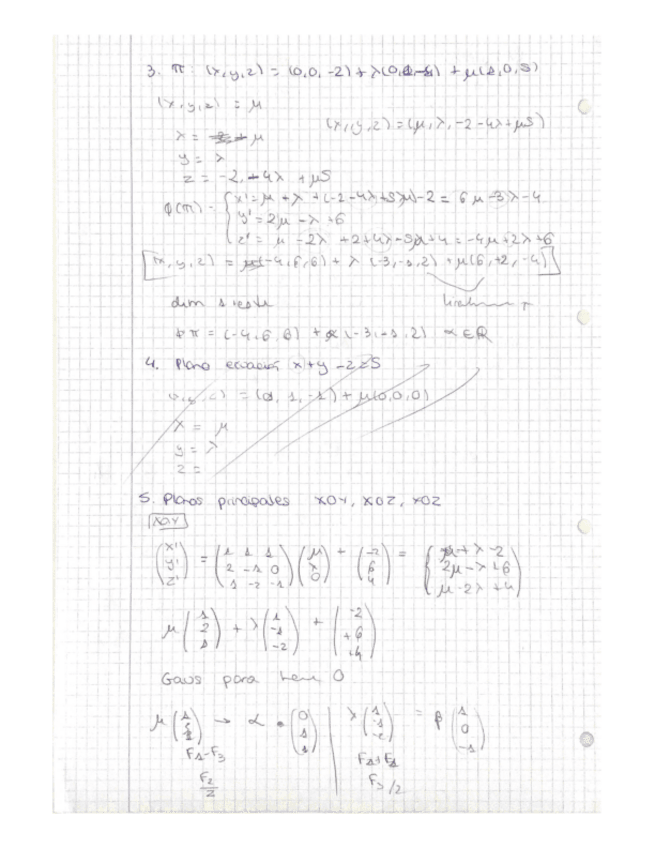 3. π: (x,y,z) = (0,0,-2) + λ(0,1,-4) + μ(1,0,5)
(x,y,z) = μ
(x,y,z) = (μ, λ, -2-4λ+μ5)
x = μ
y = λ
z = -2 -4λ + μ5
φ(π) = { x' = μ + λ + (-2-4λ+5μ) -2 = 6μ -3λ -4
y' = 2μ - λ + 6
z' = μ - 2λ + 2+4λ -5μ+4 = -4μ+2λ+6
[(x,y,z) = (-4,6,6) + λ(-3,-1,2) + μ(6,+2,-4)]
dim 1 recta
π = (-4,6,6) + α(-3,-1,2) α∈ℝ
4. Plano ecuación x+y-z=5
(x,y,z) = (0, 1, -1) + μ(0,0,0)
x = μ
y = λ
z =
5. Planos principales XOY, XOZ, XOZ
XOY
(x' y' z') = (1 1 1 / 2 -1 0 / 1 -2 -1) (μ λ 0) + (-2 6 4) = { μ+λ-2 / 2μ-λ+6 / μ-2λ+4
μ (1 2 1) + λ (1 -1 -2) + (-2 +6 +4)
Gauss para tener 0
μ (1 2 1) → α · (0 1 1) | λ (1 -1 -2) = β (1 0 -1)
F1-F3
F2/2
F3/2